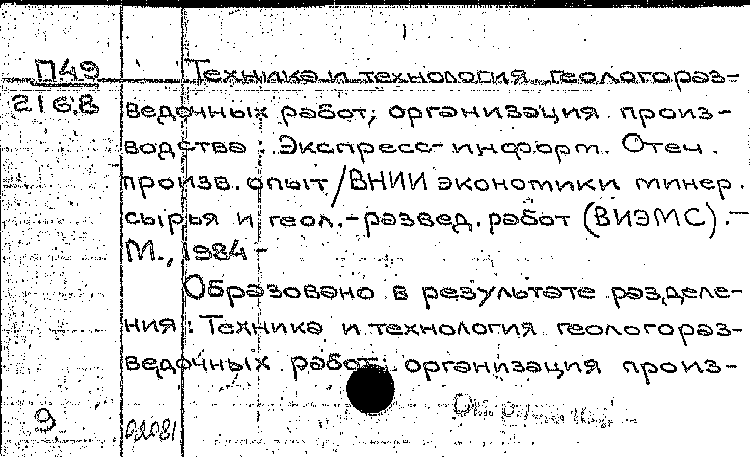 П49 Техника и технология геологораз-
2168 ведочных работ; организация произ-
водства: Экспресс-информ. Отеч.
произв. опыт/ВНИИ экономики минер.
сырья и геол.-развед. работ (ВИЭМС).-
М., 1984 -
Образовано в результате разделе-
ния: Техника и технология геологораз-
ведочных работ; организация произ-
9